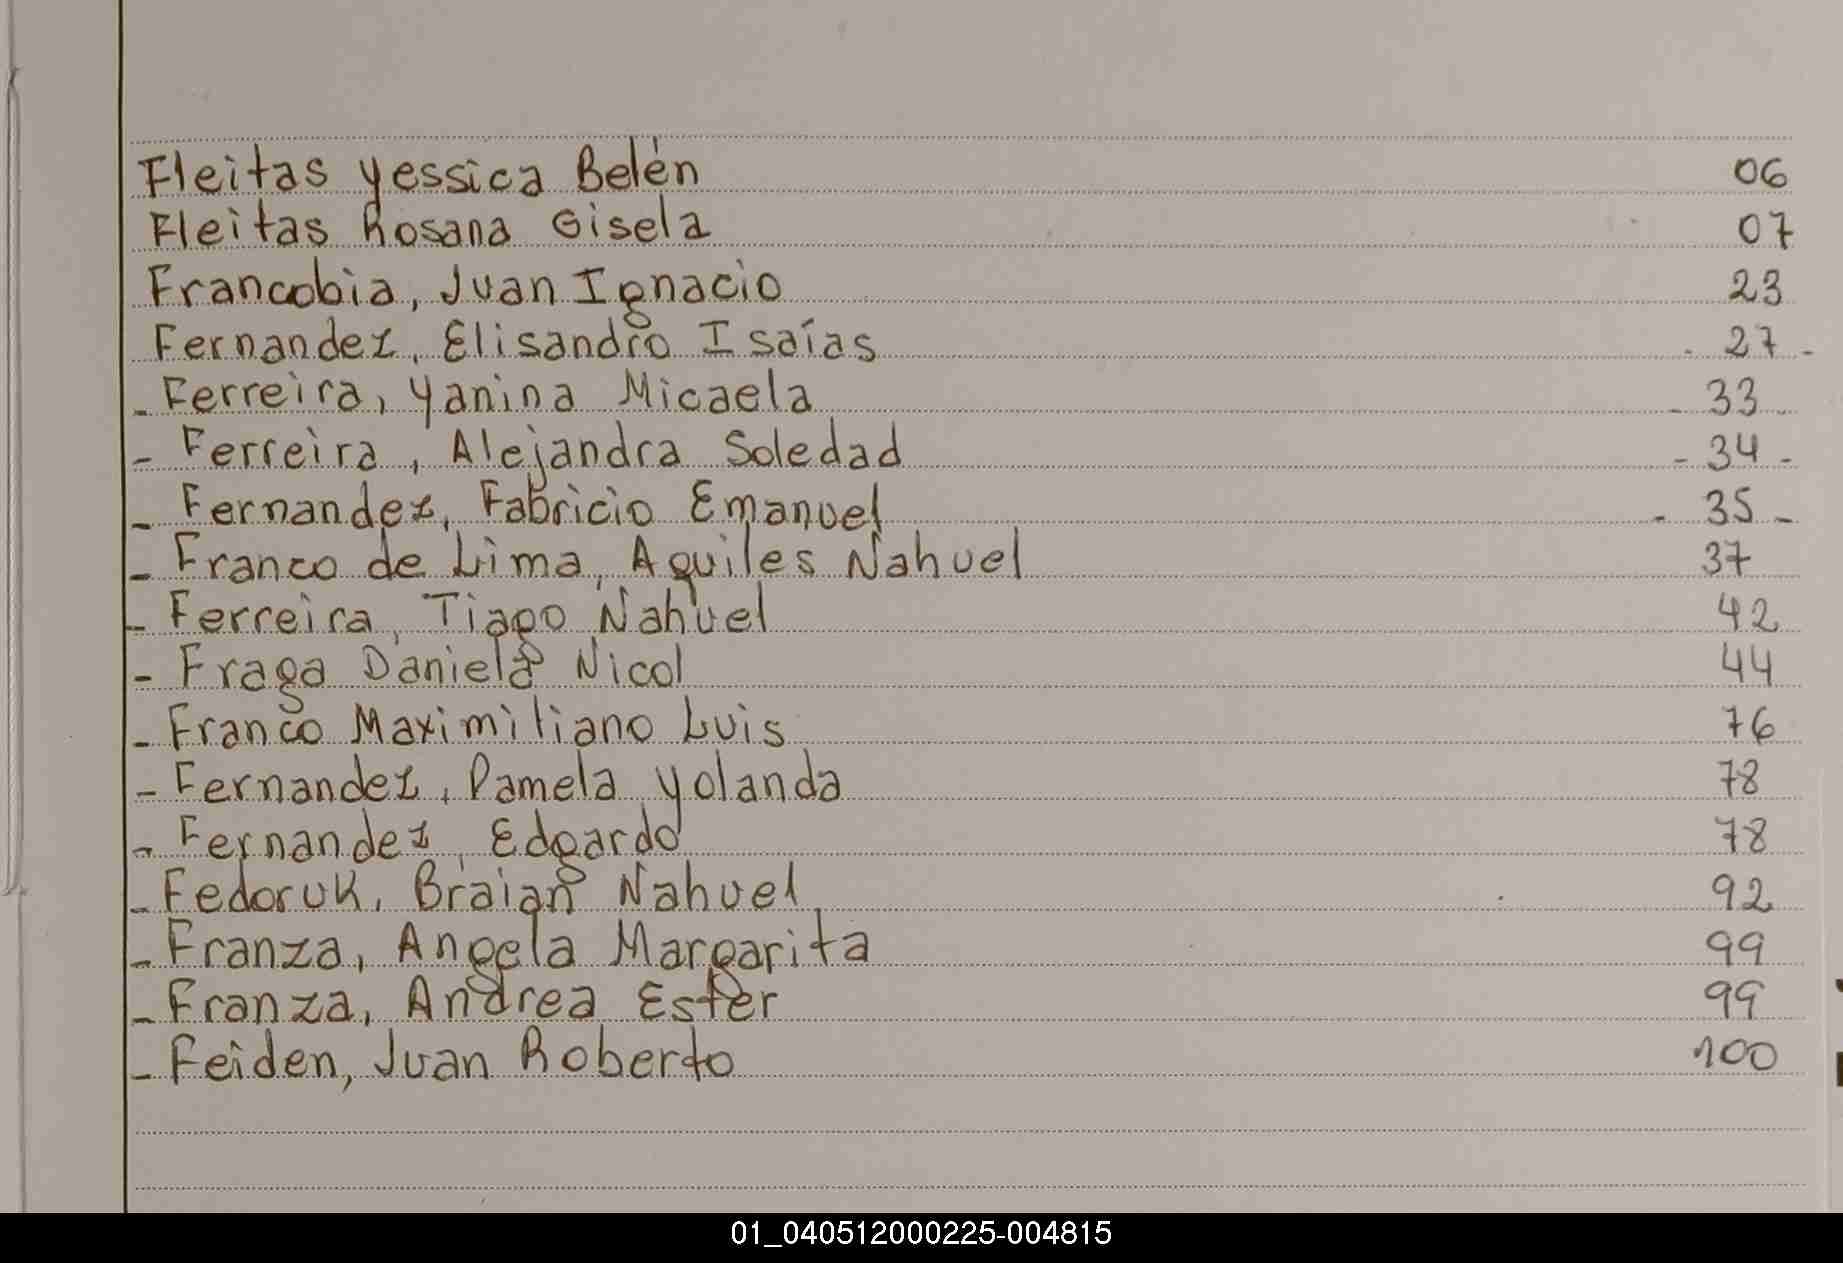 Fleitas Yessica Belén 06
Fleitas Rosana Gisela 07
Francobia, Juan Ignacio 23
Fernandez, Elisandro Isaías - 27 -
- Ferreira, Yanina Micaela - 33 -
- Ferreira, Alejandra Soledad - 34 -
- Fernandez, Fabricio Emanuel - 35 -
- Franco de Lima, Aquiles Nahuel 37
- Ferreira, Tiago Nahuel 42
- Fraga Daniela Nicol 44
- Franco Maximiliano Luis 76
- Fernandez, Pamela Yolanda 78
- Fernandez, Edgardo 78
- Fedoruk, Braian Nahuel 92
- Franza, Angela Margarita 99
- Franza, Andrea Ester 99
- Feiden, Juan Roberto 100
01_040512000225-004815